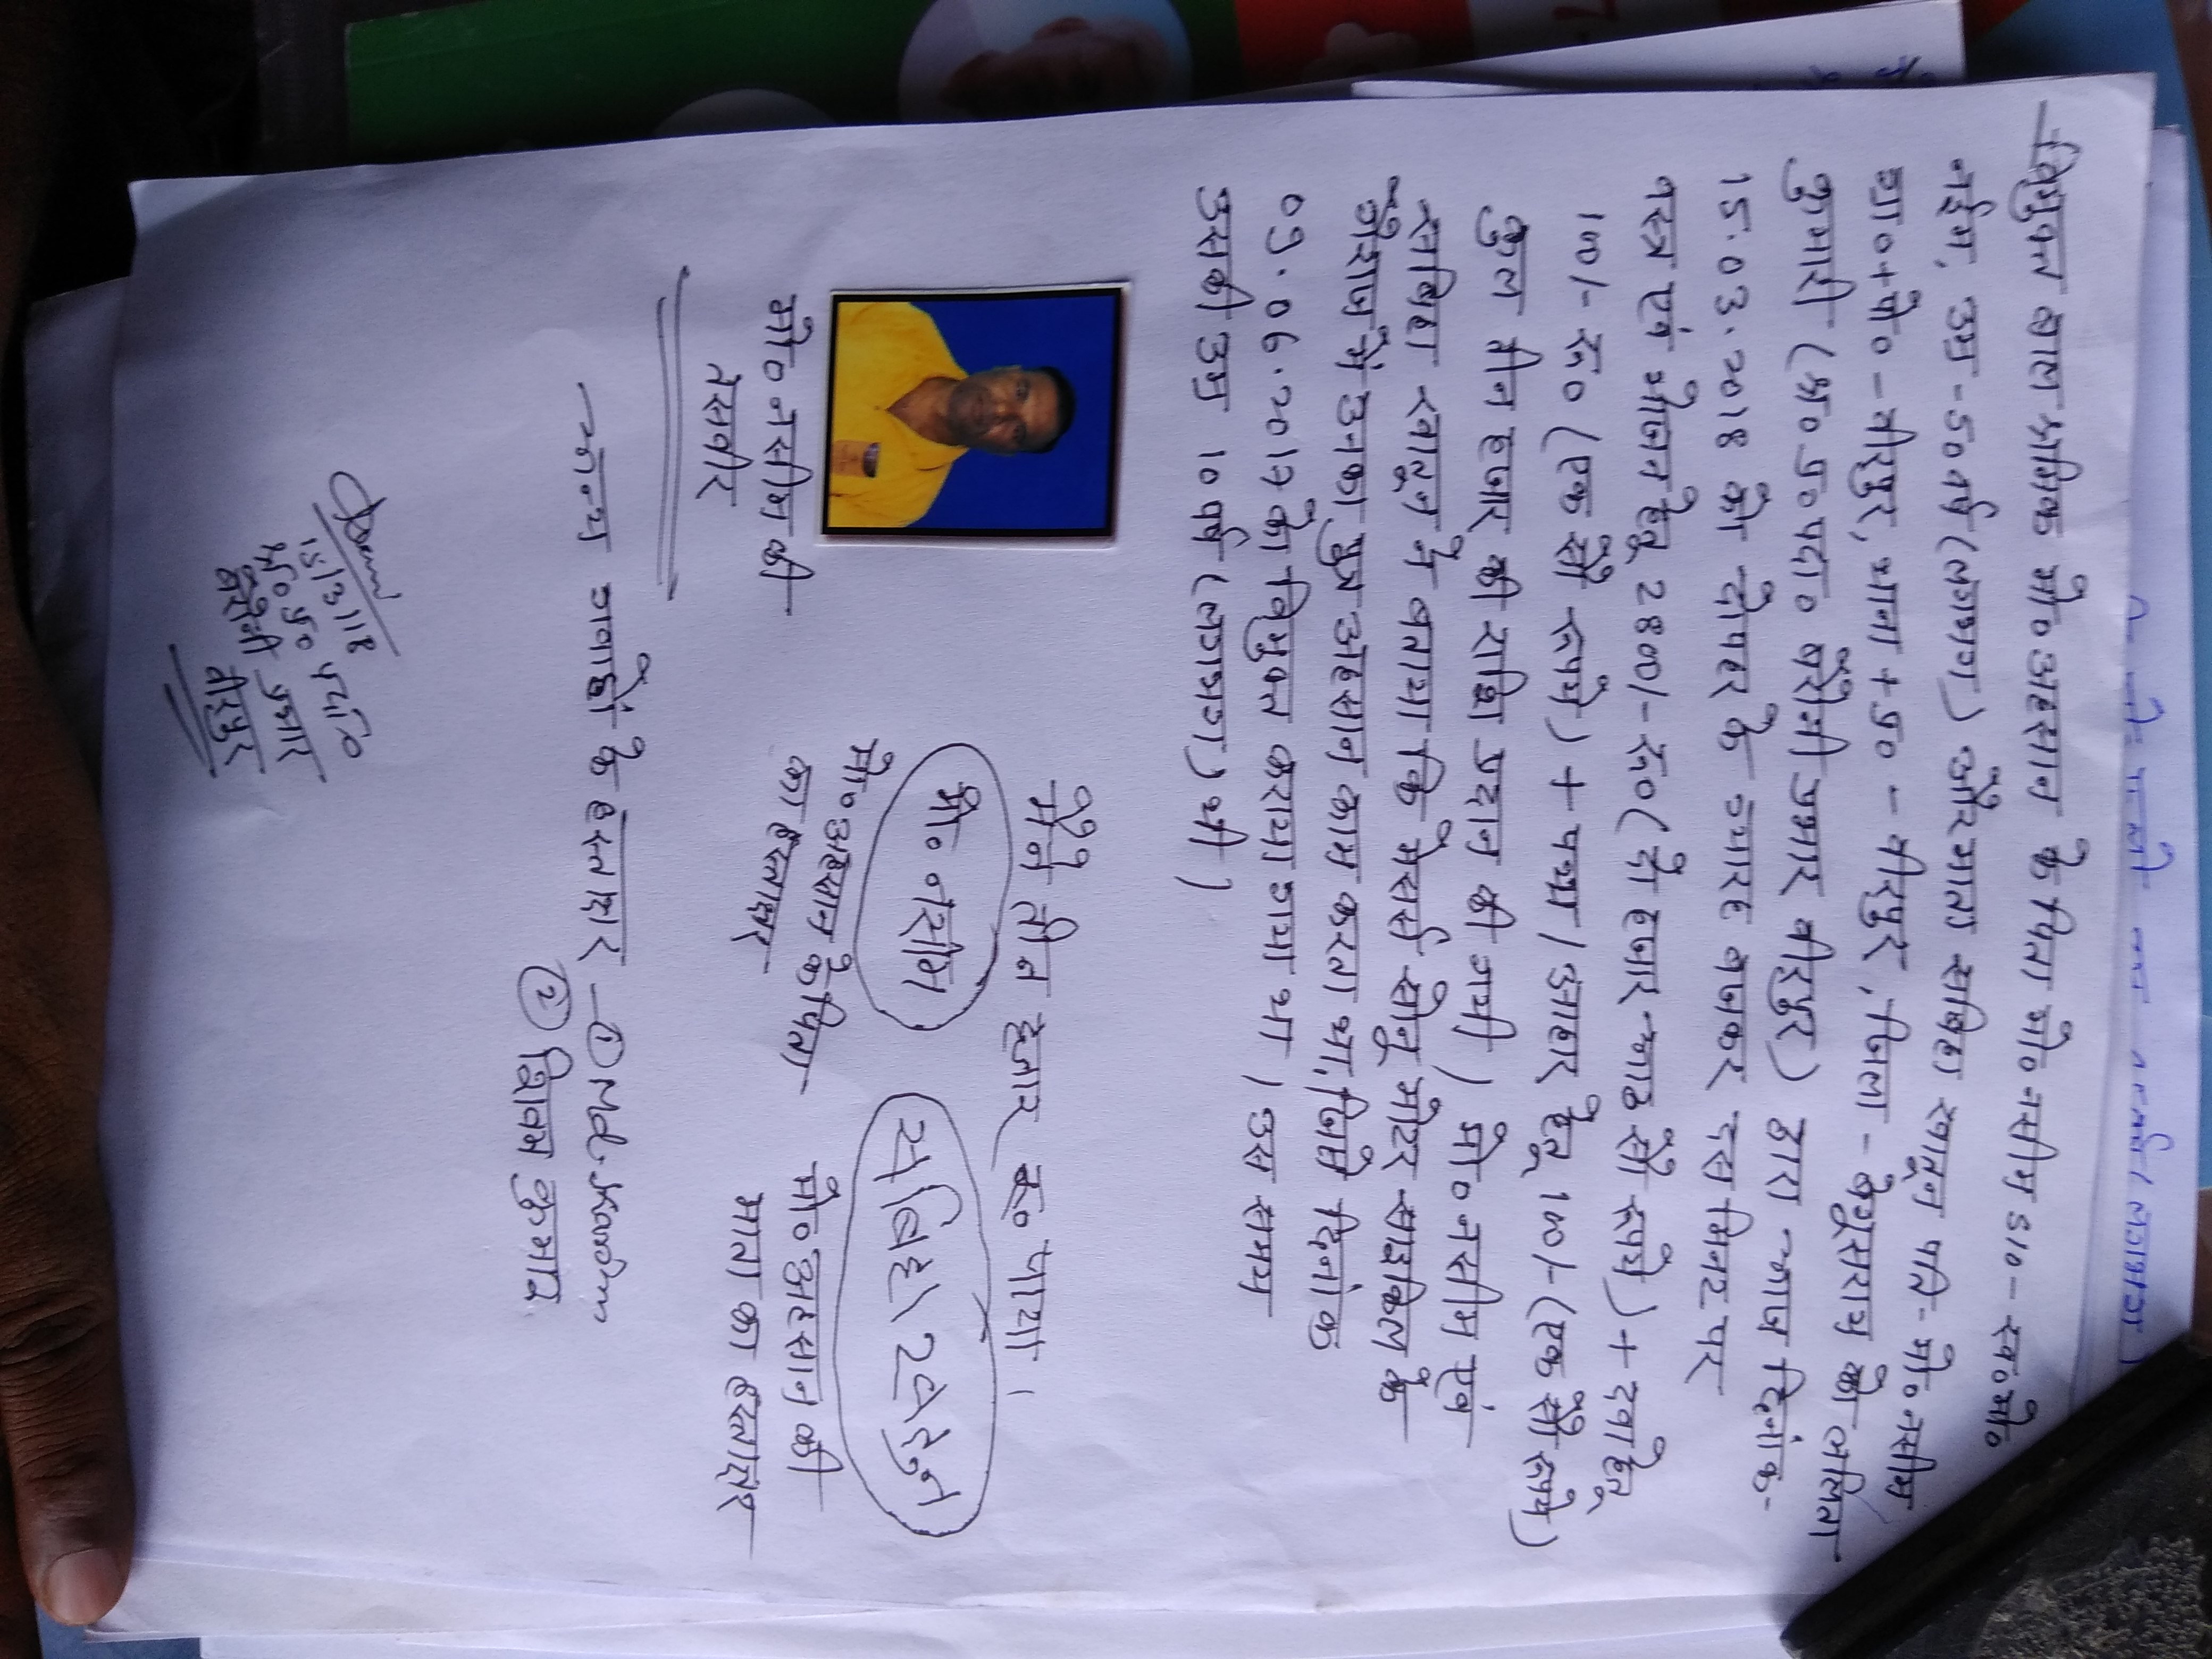 विमुक्त बाल श्रमिक मो० अहसान के पिता मो० नसीम S/O - स्व० मो०
नईम, उम्र - 50 वर्ष (लगभग) और माता सबिहा खातून पति - मो० नसीम
ग्रा० + पो० - वीरपुर, थाना + प्र० - वीरपुर, जिला - बेगूसराय को ललिता
कुमारी (श्र० प्र० पदा० बरौनी प्रभार वीरपुर) द्वारा आज दिनांक -
15.03.2018 को दोपहर के ग्यारह बजकर दस मिनट पर
वस्त्र एवं भोजन हेतु 2800/- रू० (दो हजार आठ सौ रूपये) + दवा हेतु
100/- रू० (एक सौ रूपये) + पथ्य / उपाहार हेतु 100/- (एक सौ रूपये)
कुल तीन हजार की राशि प्रदान की गयी। मो० नसीम एवं
सबिहा खातून ने बताया कि मेसर्स सोनू मोटर साइकिल के
गैराज में उनका पुत्र अहसान काम करता था, जिसे दिनांक
09.06.2017 को विमुक्त कराया गया था। उस समय
उसकी उम्र 10 वर्ष (लगभग) थी।
मैंने तीन हजार रू० पाया।
मो० नसीम
सबिहा खातुन
मो० नसीम की तस्वीर
मो० अहसान के पिता का हस्ताक्षर
मो० अहसान की माता का हस्ताक्षर
अन्य गवाहों के हस्ताक्षर - ① Md.
② शिवम कुमार
15/3/18
श्र० प्र० पदा०
बरौनी प्रभार
वीरपुर